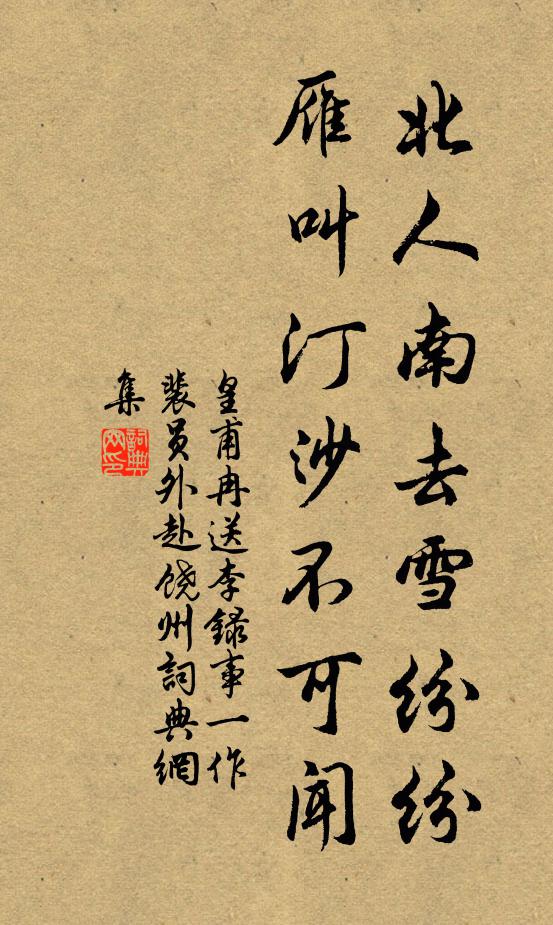 北人南去雪纷纷
雁叫汀沙不可闻
皇甫冉送李録事一作
裴员外赴饶州詞典網
集
詞典
网印